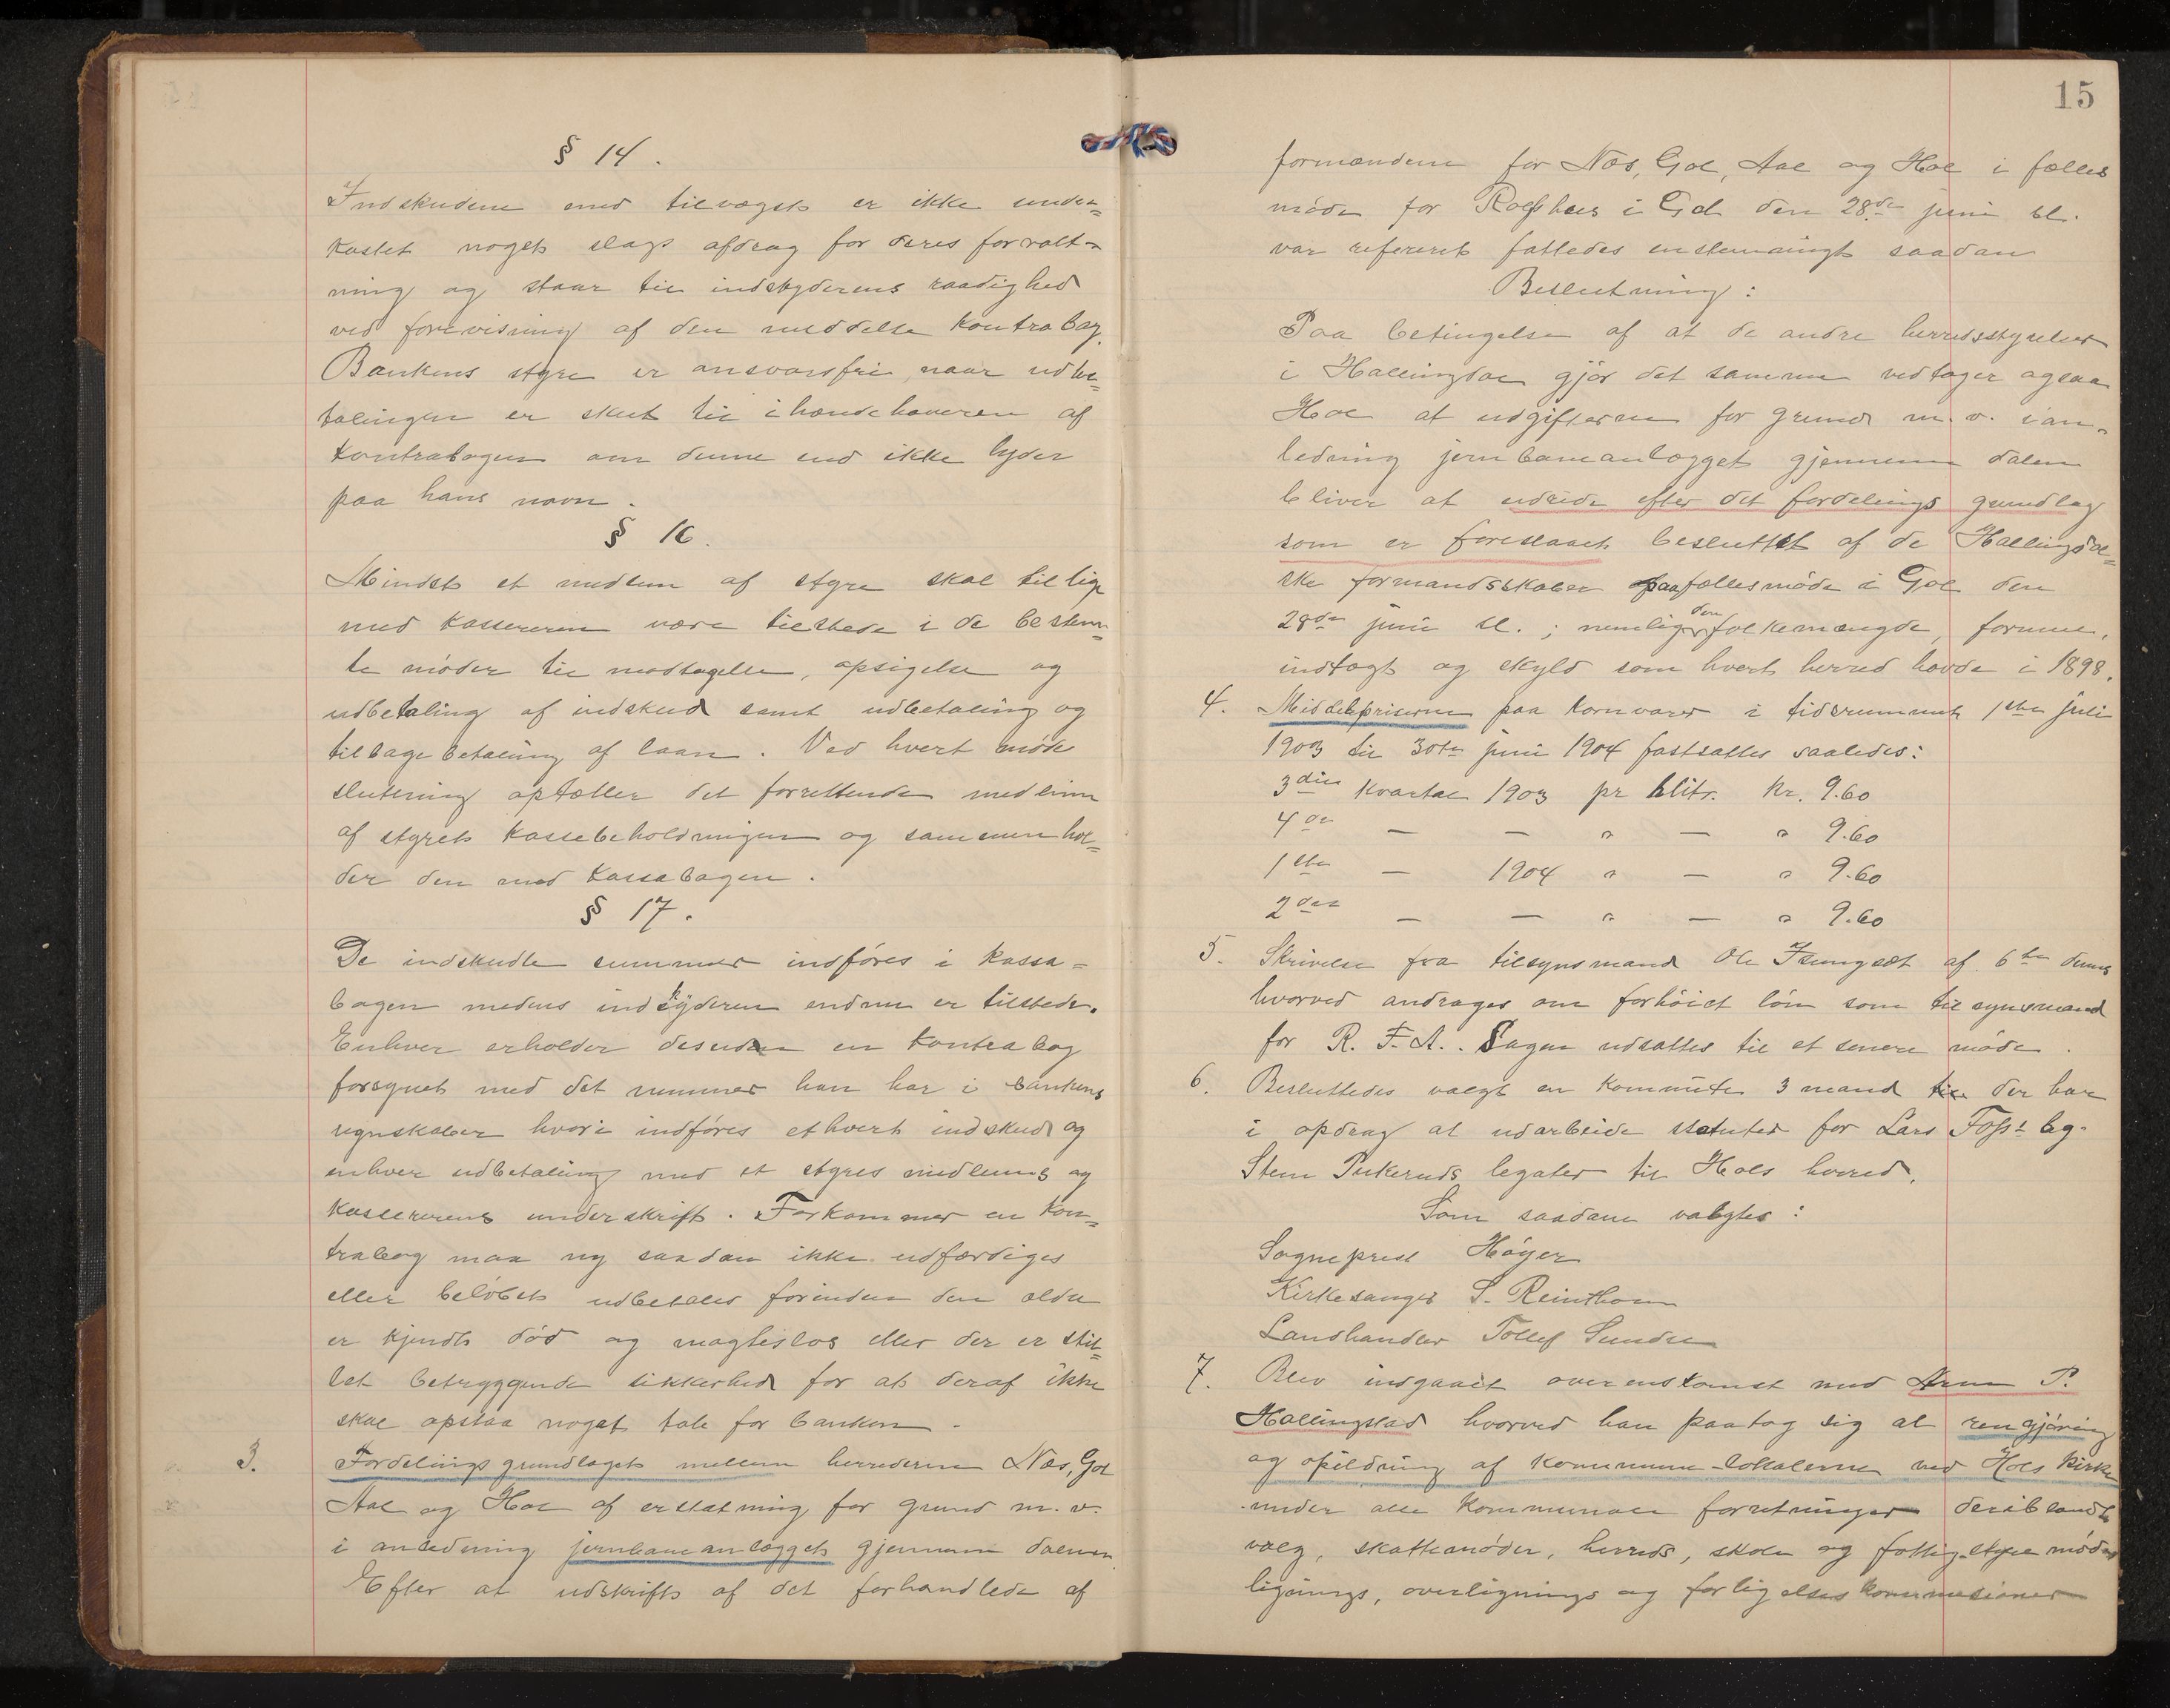 § 14.
Indskudene med tilvægst er ikke under=
kastet nogets slags afdrag for deres forvalt=
ning og staar til indskyderens raadighed
ved forevisning af den meddelte kontrabog.
Bankens styre er ansvarsfri, naar udbe=
talingen er skeet til ihændehaveren af
kontrabogen om denne end ikke lyder
paa hans navn.
§ 16.
Mindst et medlem af styre skal tillige
med kassereren være tilstede i de bestem=
te møder til modtagelse, opsigelse og
udbetaling af indskud samt udbetaling og
tilbagebetaling af laan. Ved hvert møde
slutning optæller det forrettende medlem
af styret kassebeholdningen og sammenhol=
der den med kassabogen.
§ 17.
De indskudte summer indføres i kassa=
bogen medens indskyderen endnu er tilstede.
Enhver erholder desuden en kontrabog
forsynet med det nummer han har i bankens
regnskaber hvori indføres ethvert indskud og
enhver udbetaling med et styres medlems og
kassererens underskrift. Forkommer en kon=
trabog maa ny saadan ikke udfærdiges
eller beløbet udbetales forinden den ældre
er kjendt død og magtesløs eller der er stil=
let betryggende sikkerhed for at deraf ikke
skal opstaa noget tab for banken.
3. Fordelingsgrundlaget mellem herrederne Næs, Gol
Aal og Hol af erstatning for grund m.v.
i anledning jernbaneanlægget gjennem dalen
Efter at udskrift af det forhandlede af
15
formændene for Næs, Gol, Aal og Hol i fælles
møde for Rolfshus i Gol den 28de juni sl.
var refereret fattedes enstemmigt saadan
Beslutning:
Paa betingelse af at de andre herredsstyrelser
i Hallingdal gjør det samme vedtager ogsaa
Hol at udgifterne for grund m.v. i an=
ledning jernbaneanlægget gjennem dalen
bliver at udrede efter det fordelings grundlag
som er foreslaaet besluttet af de Hallingdal=
ske formandsskaber paa fællesmøde i Gol den
28de juni sl.; nemlig den folkemængde, formue,
indtægt og skyld som hvert herred havde i 1898.
4. Middelpriserne paa kornvarer i tidsrummet 1ste juli
1903 til 30te juni 1904 fastsattes saaledes:
3die kvartal 1903 pr hlitr. Kr. 9.60
4de — — " — " 9.60
1ste — 1904 " — " 9.60
2det — — " — " 9.60
5. Skrivelse fra tilsynsmand Ole af 6te dennes
hvorved andrages om forhøiet løn som tilsynsmand
for R. F. A. Sagen udsattes til et senere møde.
6. Besluttedes valgt en kommite 3 mand der har
i opdrag at udarbeide statuter for Lars Foss: og
legater til Hols herred.
Som saadane valgtes:
Sogneprest Høyer
Kirkesanger S. Reinthon
Landhandler Tollef Sundre
7. Blev indgaaet overenskomst med Arne P.
Hallingstad hvorved han paatog sig at rengjøring
og opildning af kommune-lokalerne ved Hols kirke
under alle kommunale forretninger deriblandt
valg, skattemøder, herreds, skole og fattigstyremøder
lignings, overlignings og forligelses kommisioner